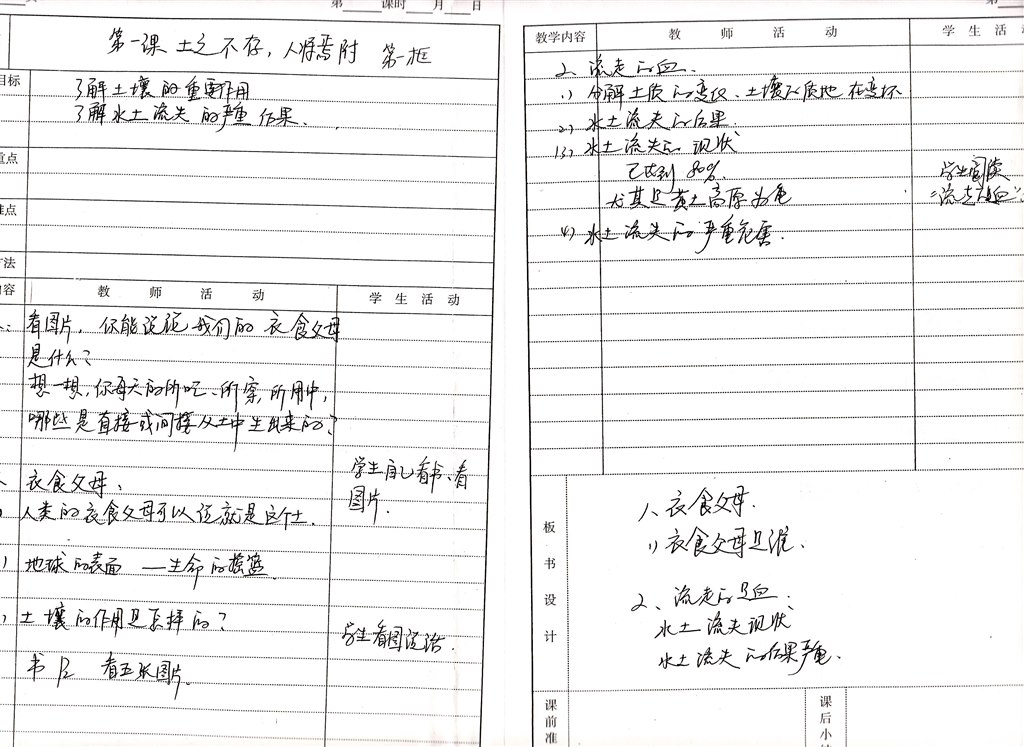 第 课时 月 日
第一课 土之不存，人将焉附 第一框
目标
了解土壤的重要作用
了解水土流失的严重后果.
重点
难点
方法
内容 教 师 活 动 学 生 活 动
看图片，你能说说我们的衣食父母
是什么？
想一想，你每天的所吃、所穿，所用中，
哪些是直接或间接从土中生出来的？
衣食父母、
学生自己看书、看
图片.
人类的衣食父母可以说就是这个土.
地球的表面 —生命的摇篮.
土壤的作用是怎样的？
学生看图说话.
书 看五张图片.
第
教学内容 教 师 活 动 学 生 活
2、流走的血.
1) 分解土质的变化、土壤的质地在变坏
2) 水土流失的后果.
(3) 水土流失的现状
已达到 80%.
学生阅读
尤其是黄土高原为色
“流走的血”.
4) 水土流失的严重危害.
板书设计
1、衣食父母.
1) 衣食父母是谁.
2、流走的血.
水土流失现状
水土流失的后果严重.
课前准
课后小